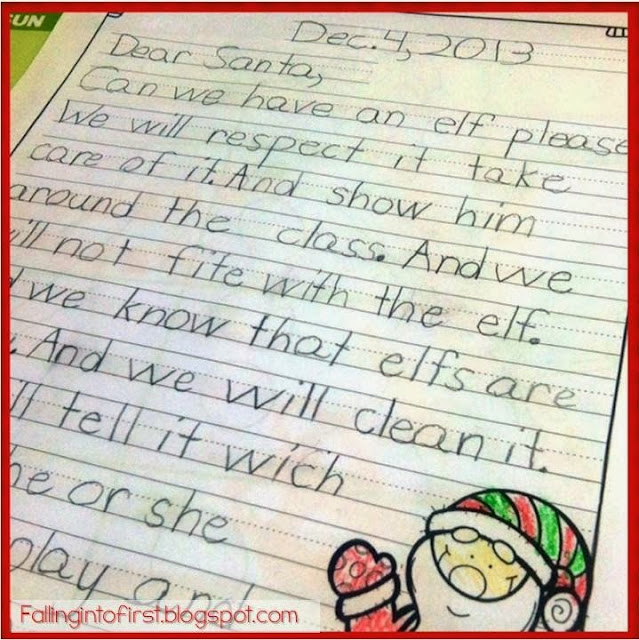 FUN
Dec. 4, 2013
Dear Santa,
Can we have an elf please
We will respect it take
care of it. And show him
around the class. And we
ill not fite with the elf.
d we know that elfs are
. And we will clean it.
ll tell it wich
he or she
play and
Fallingintofirst.blogspot.com